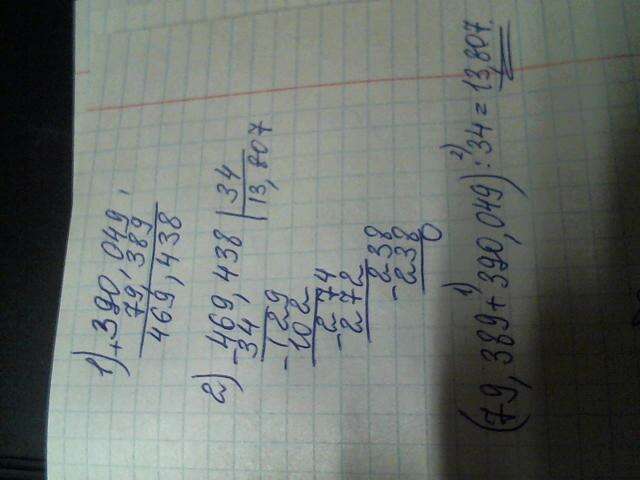 1) +390,049
79,389
469,438
2) -469,438 | 34
34 13,807
-129
102
-274
272
-238
-238
0
1) 2)
(79,389+390,049):34=13,807